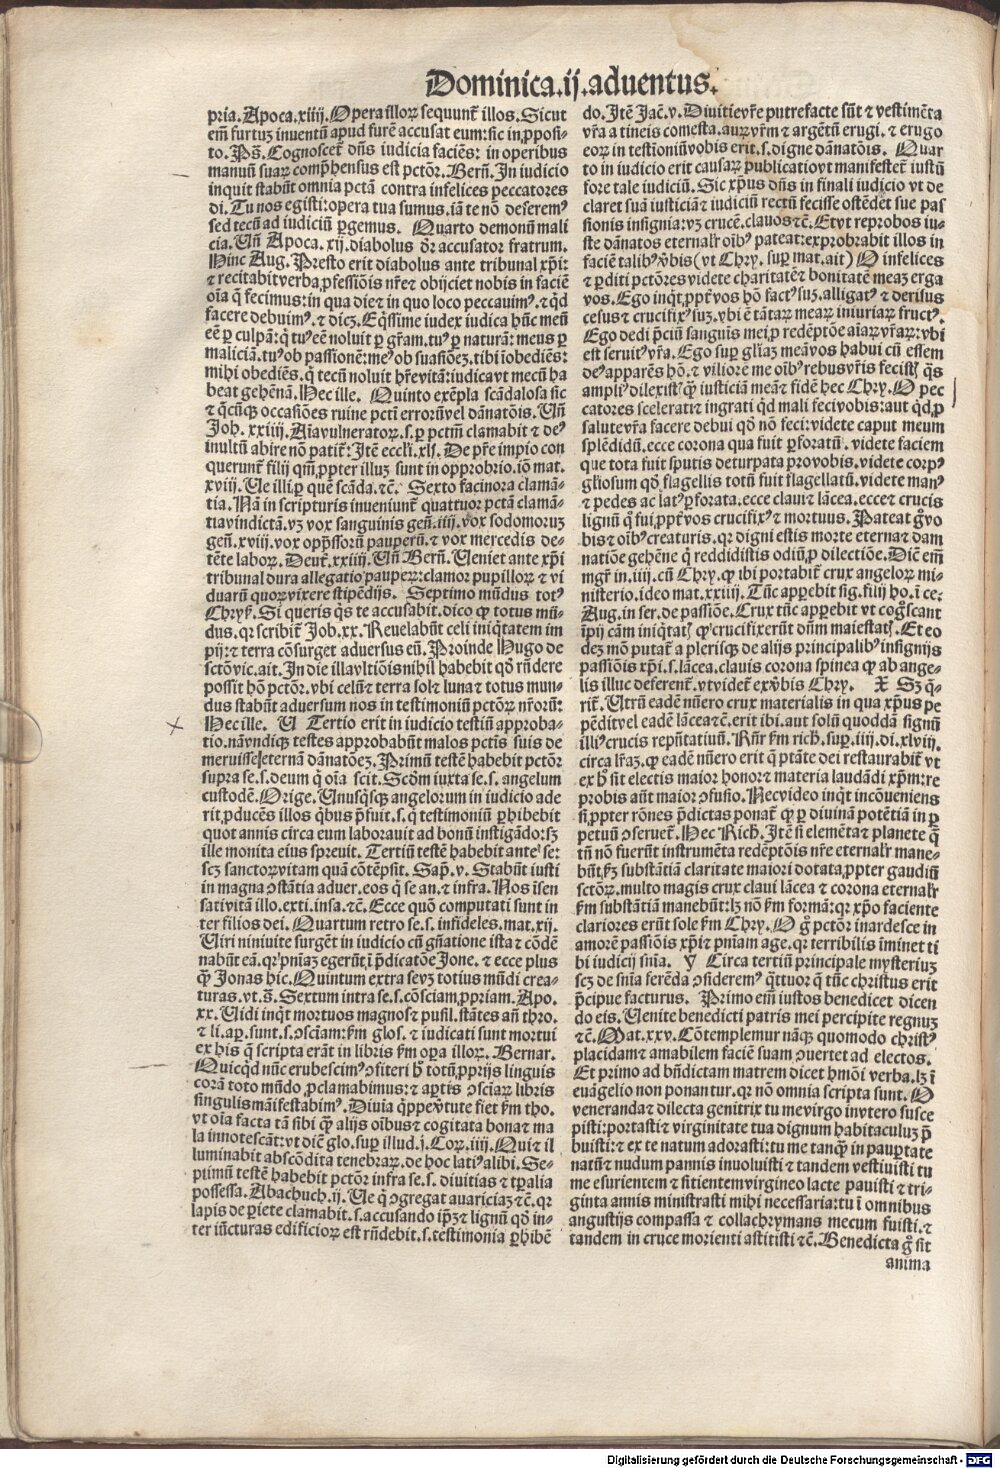 Dominica.ij.aduentus.
pria. Apoca.xiiij. Opera illoꝝ sequunt̃ illos. Sicut
em̃ furtuꝫ inuentũ apud furẽ accusat eum: sic in ꝓposi-
to. Pš. Cognoscet̃ dñs iudicia faciẽs: in operibus
manuũ suaꝝ comp̃hensus est pctõr. Berñ. In iudicio
inquit stabũt omnia pctã contra infelices peccatores
di. Tu nos egisti: opera tua sumus. iã te nõ deseremꝰ
sed tecũ ad iudiciũ ꝑgemus. Quarto demonũ mali
cia. Uñ Apoca. xij. diabolus õr accusator fratrum.
Hinc Aug. Presto erit diabolus ante tribunal xp̃i:
⁊ recitabit verba ꝓfessiõis nr̃e ⁊ obijciet nobis in faciẽ
oĩa q̃ fecimus: in qua die ⁊ in quo loco peccauimꝰ. ⁊ qd
facere debuimꝰ. ⁊ dicꝫ. Eq̃ssime iudex iudica hũc meũ
eẽ ꝑ culpã: q̃ tuꝰ eẽ noluit ꝑ gr̃am. tuꝰ ꝑ naturã: meus ꝑ
maliciã. tuꝰ ob passionẽ: meꝰ ob suasiõeꝫ. tibi ĩobediẽs:
mihi obediẽs. q̃ tecũ noluit hr̃e vitã: iudica vt mecũ ha
beat gehẽnã. Hec ille. Quinto exẽpla scãdalosa sic
⁊ q̃cũqꝫ occasiões ruine pctĩ erroruꝫ vel dãnatõis. Uñ
Job. xxiiij. Aĩa vulneratoꝝ. s. ꝑ pctm̃ clamabit ⁊ deꝰ
inultũ abire nõ patit̃: Itẽ eccli. xlj. De pr̃e impio con
querunt̃ filij qm̃ ꝓpter illuꝫ sunt in opprobrio. iõ mat.
xviij. Ue illi ꝑ quẽ scãda. ⁊c̃. Sexto facinora clamã-
tia. Nã in scripturis inueniunt̃ quattuor pctã clamã-
tia vindictã. vꝫ vox sanguinis geñ. iiij. vox sodomoruꝫ
geñ. xviij. vox opp̃ssoꝝ pauperũ. ⁊ vox mercedis de-
tẽte laboꝝ. Deut̃. xxiiij. Uñ Berñ. Ueniet ante xp̃i
tribunal dura allegatio pauperꝝ: clamor pupilloꝝ ⁊ vi
duarũ quoꝝ vixere stipẽdijs. Septimo mũdus totꝰ
Chryẜ. Si queris q̃s te accusabit. dico qꝫ totus mũ-
dus. qr scribit̃ Job. xx. Reuelabũt celi iniq̃tatem im
pij: ⁊ terra cõsurget aduersus eũ. Proinde Hugo de
sctõ vic. ait. In die illa vltiõis nihil habebit qõ rñdere
possit hõ pctõr. vbi celũ ⁊ terra sol ⁊ luna ⁊ totus mun-
dus stabũt aduersum nos in testimoniũ pctõꝝ nr̃orũ:
Hec ille. U Tertio erit in iudicio testiũ approba-
tio. nã vndiqꝫ testes approbabũt malos pctĩs suis de
meruisse eternã dãnatõeꝫ. Primũ testẽ habebit pctõr
supra se. s. deum q̃ oĩa scit. Scd̃m iuxta se. s. angelum
custodẽ. Orige. Unusq̃sqꝫ angelorum in iudicio ade
rit. ꝓducẽs illos q̃bus p̃fuit. s. q̃ testimoniũ ꝑhibebit
quot annis circa eum laborauit ad bonũ instigãdo: sꝫ
ille monita eius spreuit. Tertiũ testẽ habebit ante se:
scꝫ sanctoꝝ vitam quã cõtẽpsit. Sap̃. v. Stabũt iusti
in magna ↄstãtia aduer. eos q̃ se an. ⁊ infra. Nos ĩsen
sati vitã illo. exti. insa. ⁊c̃. Ecce quõ computati sunt in
ter filios dei. Quartum retro se. s. infideles. mat. xij.
Uiri niniuite surgẽt in iudicio cũ gñatione ista ⁊ cõdẽ
nabũt eã. qr pñiaꝫ egerũt ĩ p̃dicatõe Jone. ⁊ ecce plus
qꝫ Jonas hic. Quintum extra se vꝫ totius mũdi crea-
turas. vt. s̃. Sextum intra se. s. cõsciam ꝓpriam. Apo.
xx. Uidi inq̃t mortuos magnos ⁊ pusil. stãtes añ thro.
⁊ li. ap̃. sunt. s. ↄsciam: km̃ glos. ⁊ iudicati sunt mortui
ex his q̃ scripta erãt in libris km̃ oꝑa illoꝝ. Bernar.
Quicq̃d nũc erubescimꝰ ↄfiteri h̃ totũ ꝓprijs linguis
corã toto mũdo ꝓclamabimus: ⁊ aꝑtis ↄsciaꝝ libris
singulis mãifestabimꝰ. Diuĩa q̃ppe v̂tute fiet km̃ tho.
vt oĩa facta tã sibi qꝫ alijs oĩbus ⁊ cogitata bona ⁊ ma
la innotescãt: vt diẽ glo. suꝑ illud. j. Coꝝ. iiij. Qui ⁊ il
luminabit abscõdita tenebraꝝ. de hoc latiꝰ alibi. Se-
ptimũ testẽ habebit pctõr infra se. s. diuitias ⁊ tꝑalia
possessa. Abachuch. ij. Ue q̃ ↄgregat auariciaꝫ ⁊c̃. qr
lapis de ꝑiete clamabit. s. accusando ip̃ꝫ ⁊ lignũ qõ in-
ter iũcturas edificioꝝ est rñdebit. s. testimonia ꝑhibẽ
do. Itẽ Jac̃. v. Diuitie vr̃e putrefacte sũt ⁊ vestimẽta
vr̃a a tineis comesta. auꝝ vr̃m ⁊ argẽtũ erugi. ⁊ erugo
eoꝝ in testioniũ vobis erit. s. digne dãnatõis. Quar
to in iudicio erit causaꝝ publicatio vt manifestet̃ iustũ
fore tale iudiciũ. Sic xp̃us dñs in finali iudicio vt de
claret suã iusticiã ⁊ iudiciũ rectũ fecisse ostẽdet sue pas
sionis insignia: vꝫ crucẽ. clauos ⁊c̃. Et vt reprobos iu-
ste dãnatos eternalr̃ oĩbꝰ pateat: exprobrabit illos in
faciẽ talibꝰ v̂bis (vt Chry. suꝑ mat. ait) O infelices
⁊ ꝑditi pctõres videte charitatẽ ⁊ bonitatẽ meaꝫ erga
vos. Ego inq̃t ꝓpt̃ vos hõ factꝰ suꝫ. alligatꝰ ⁊ derisus
cesus ⁊ crucifixꝰ suꝫ. vbi ẽ tãtaꝝ meaꝝ iniuriaꝝ fructꝰ.
Ego dedi p̃ciũ sanguĩs mei ꝓ redẽptõe aĩaꝝ vr̃aꝝ: vbi
est seruitꝰ vr̃a. Ego suꝑ gl̃iaꝫ meã vos habui cũ essem
deꝰ apparẽs hõ. ⁊ viliorẽ me oĩbꝰ rebus vr̃is fecistꝭ q̃s
ampliꝰ dilexistꝭ qꝫ iusticiã meã ⁊ fidẽ hec Chry. O pec
catores scelerati ⁊ ingrati q̃d mali feci vobis: aut q̃d ꝓ
salute vr̃a facere debui qõ nõ feci: videte caput meum
splẽdidũ. ecce corona qua fuit ꝑforatũ. videte faciem
que tota fuit sputis deturpata pro vobis. videte corpꝰ
gl̃iosum qõ flagellis totũ fuit flagellatũ. videte manꝰ
⁊ pedes ac latꝰ ꝑforata. ecce claui ⁊ lãcea. ecce ⁊ crucis
lignũ q̃ fui ꝓpt̃ vos crucifixꝰ ⁊ mortuus. Pateat g̊ vo
bis ⁊ oĩbꝰ creaturis. qr digni estis morte eterna ⁊ dam
natiõe gehẽne q̃ reddidistis odiũ ꝓ dilectiõe. Diẽ em̃
mgr̃ in. iiij. cũ Chry. qꝫ ibi portabit̃ crux angeloꝝ mi-
nisterio. ideo mat. xxiiij. Tũc apꝑebit sig. filij ho. ĩ ce.
Aug. in ser. de passiõe. Crux tũc apꝑebit vt cog̃scant
ĩpij cãm iniq̃tatꝭ qꝫ crucifixerũt dñm maiestatꝭ. Et eo
deꝫ mõ putat̃ a plerisqꝫ de alijs principalibꝰ insignijs
passiõis xp̃i. s. lãcea. clauis corona spinea qꝫ ab ange-
lis illuc deferent̃. vt videt̃ ex v̂bis Chry. X Sꝫ q̃-
rit̃. Utrũ eadẽ nũero crux materialis in qua xp̃us pe
pẽdit vel eadẽ lãcea ⁊c̃. erit ibi. aut solũ quoddã signũ
illiꝰ crucis rep̃ntatiuũ. Rñr̃ km̃ rich̃. suꝑ. iiij. di. xlviij.
circa lr̃aꝫ. qꝫ eadẽ nũero erit q̃ ptãte dei restaurabit̃ vt
ex h̃ sit electis maior honor ⁊ materia laudãdi xp̃m: re
probis aũt maior ↄfusio. Nec video inq̃t incõueniens
si ꝓpter rõnes p̃dictas ponat̃ qꝫ ꝑ diuinã potẽtiã in ꝑ
petuũ ↄseruet̃. Hec Rich̃. Itẽ si elemẽta ⁊ planete q̃
tñ nõ fuerũt instrumẽta redẽptõis nr̃e eternalr̃ mane-
bũt. km̃ substãtiã claritate maiori dotata. ꝓpter gaudiũ
sctõꝝ. multo magis crux claui lãcea ⁊ corona eternalr̃
km̃ substãtiam manebũt: lꝫ nõ km̃ formã: qr xp̃o faciente
clariores erũt sole km̃ Chry. O g̊ pctõr inardesce in
amorẽ passiõis xp̃i ⁊ pñiam age. qr terribilis ĩminet ti
bi iudicij sñia. Y Circa tertiũ principale mysteriuꝫ
scꝫ de sñia ferẽda ↄsiderem̃ꝰ q̃ttuor q̃ tũc christus erit
p̃cipue facturus. Primo em̃ iustos benedicet dicen
do eis. Uenite benedicti patris mei percipite regnuꝫ
⁊c̃. Mat. xxv. Cõtemplemur nãqꝫ quomodo christꝰ
placidam ⁊ amabilem faciẽ suam ↄuertet ad electos.
Et primo ad bñdictam matrem dicet hmõi verba. lꝫ ĩ
euãgelio non ponantur. qr nõ omnia scripta sunt. O
veneranda ⁊ dilecta genitrix tu me virgo in vtero susce
pisti: portasti ⁊ virginitate tua dignum habitaculuꝫ p̃
buisti: ⁊ ex te natum adorasti: tu me tanqꝫ in pauꝑtate
natũ ⁊ nudum pannis inuoluisti ⁊ tandem vestiuisti tu
me esurientem ⁊ sitientem virgineo lacte pauisti ⁊ tri-
ginta annis ministrasti mihi necessaria: tu ĩ omnibus
angustijs compassa ⁊ collachrymans mecum fuisti. ⁊
tandem in cruce morienti astitisti ⁊c̃. Benedicta g̊ sit
anima
Digitalisierung gefördert durch die Deutsche Forschungsgemeinschaft - DFG